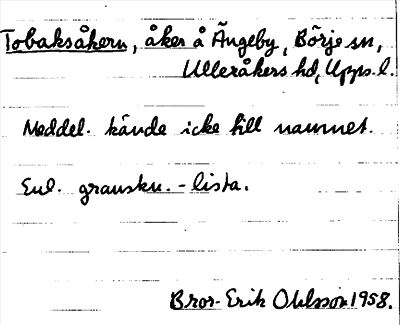 Tobaksåkern, åker å Ängeby, Börje sn,
Ulleråkers hd, Upps. l.
Meddel. kände icke till namnet.
Enl. gransku. - lista.
Bror-Erik Ohlsson 1958.